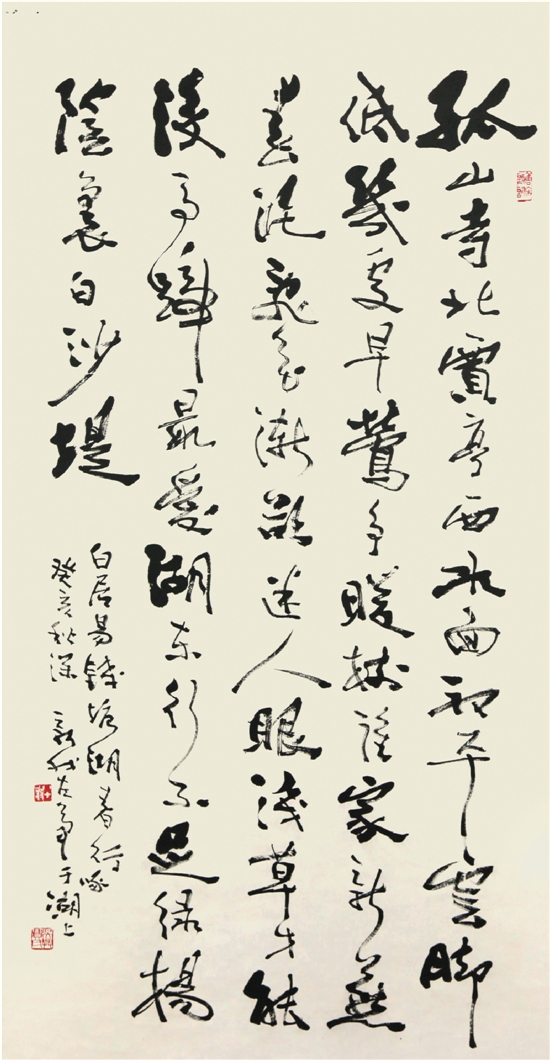 孤山寺北賈亭西水面初平雲脚
低幾處早鶯争暖樹誰家新燕
春泥亂花漸欲迷人眼淺草才能
没馬蹄最愛湖東行不足緑楊
陰裏白沙堤
白居易錢塘湖春行 啄
癸亥秋深 新我左筆于湖上